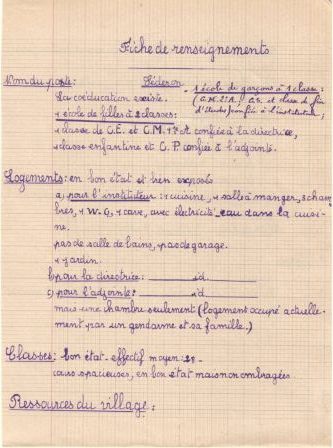 Fiche de renseignements
Nom du poste: Séderon 1 école de garçons à 1 classe:
La coéducation existe: (C.M. 2e A. C.S. et classe de fin
d'études confiée à l'instituteur;
1 école de filles à 2 classes:
1 classe de C.E. et C.M. 1re A confiée à la directrice,
1 classe enfantine et C.P. confiée à l'adjointe.
Logements: en bon état et bien exposés
a) pour l'instituteur: 1 cuisine, 1 salle à manger, 3 cham
bres, 1 W.C, 1 cave, avec électricité eau dans la cuisi-
ne.
pas de salle de bains, pas de garage.
1 jardin.
b) pour la directrice: id
c) pour l'adjointe: id
mais une chambre seulement (logement occupé actuelle-
ment par un gendarme et sa famille.)
Classes: bon état - effectif moyen: 25 -
cours spacieuses, en bon état mais non ombragées
Ressources du village: